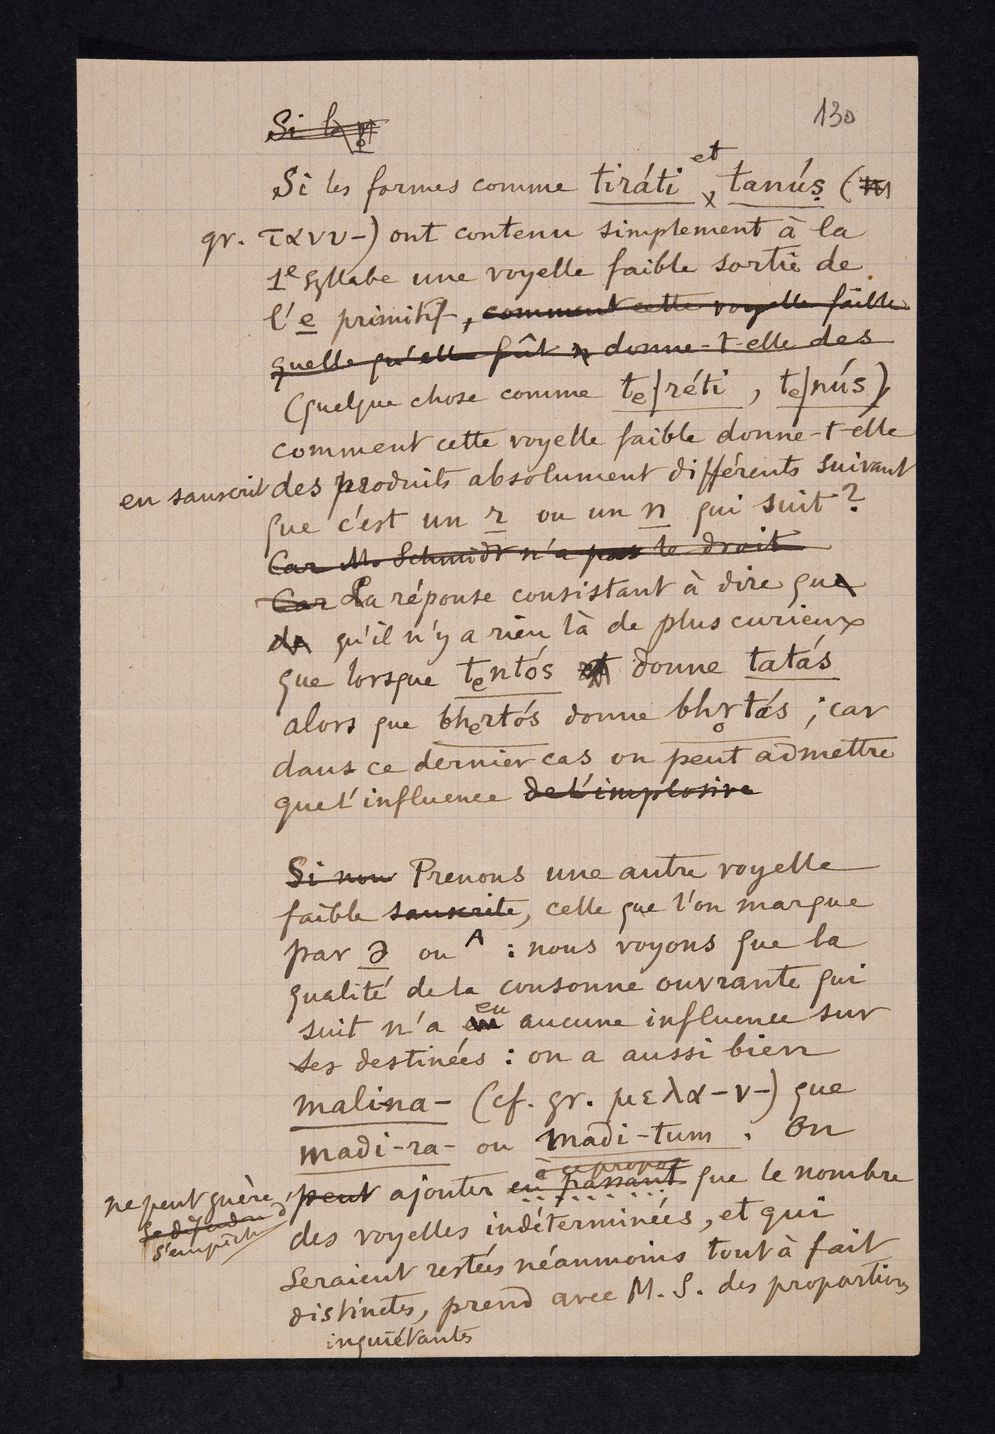 130
Si le r̥
Si les formes comme tiráti et tanúṣ (
gr. τανυ-) ont contenu simplement à la
1e syllabe une voyelle faible sortie de
l'e primitif, comment cette voyelle faible
quelle qu'elle fût donne-t-elle des
(quelque chose comme tₑ/réti, tₑ/nús),
comment cette voyelle faible donne-t-elle
en sanscrit des produits absolument différents suivant
que c'est un r ou un n qui suit?
Car M. Schmidt n'a pas le droit
Car La réponse consistant à dire que
de qu'il n'y a rien là de plus curieux
que lorsque tₑntós et donne tatás
alors que bhₑrtós donne bhr̥tás; car
dans ce dernier cas on peut admettre
que l'influence de l'implosive
Si non Prenons une autre voyelle
faible sanscrite, celle que l'on marque
par ə ou ᴬ : nous voyons que la
qualité de la consonne ouvrante qui
suit n'a eu aucune influence sur
ses destinées : on a aussi bien
malina- (cf. gr. μελα-ν-) que
madi-ra- ou madi-tum. On
à ce propos
ne peut guère peut ajouter en passant que le nombre
se défendre d'
s'empêch
des voyelles indéterminées, et qui
seraient restées néanmoins tout à fait
distinctes, prend avec M. S. des proportions
inquiétantes